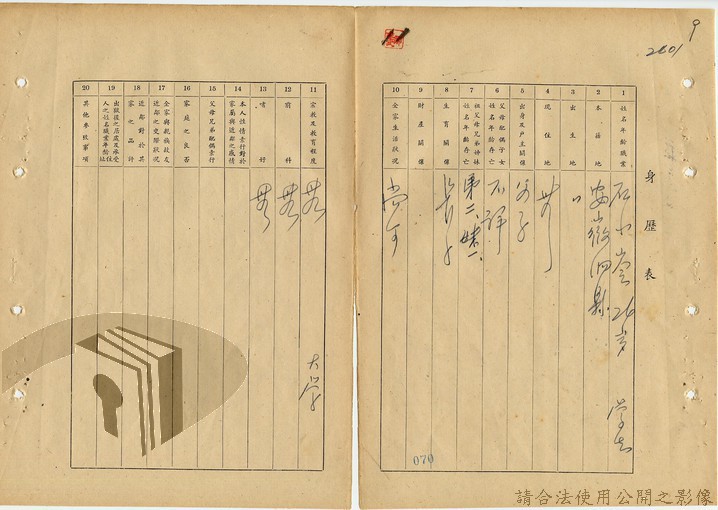 9
2601
身歷表
1 姓名年齡職業
石小岑 26歲 學生
2 本籍地
安徽泗縣
3 出生地
〃
4 現住地
5 出身及戶主關係
父子
6 父母配偶子女姓名年齡存亡
不詳
7 祖父母兄弟姊妹姓名年齡存亡
弟二、妹一、
8 生育關係
長子
9 財產關係
10 全家生活狀況
尚可
11 宗教及教育程度
無 大學
12 前科
無
13 嗜好
無
14 本人性情素行對於家屬與近鄰之感情
15 父母兄弟配偶素行
16 家庭之良否
17 全家與親族故友近鄰之交際狀況
18 近鄰對於其家之品評
19 出獄後之居處及承受人之姓名職業年齡住址
20 其他參攷事項
070
請合法使用公開之影像